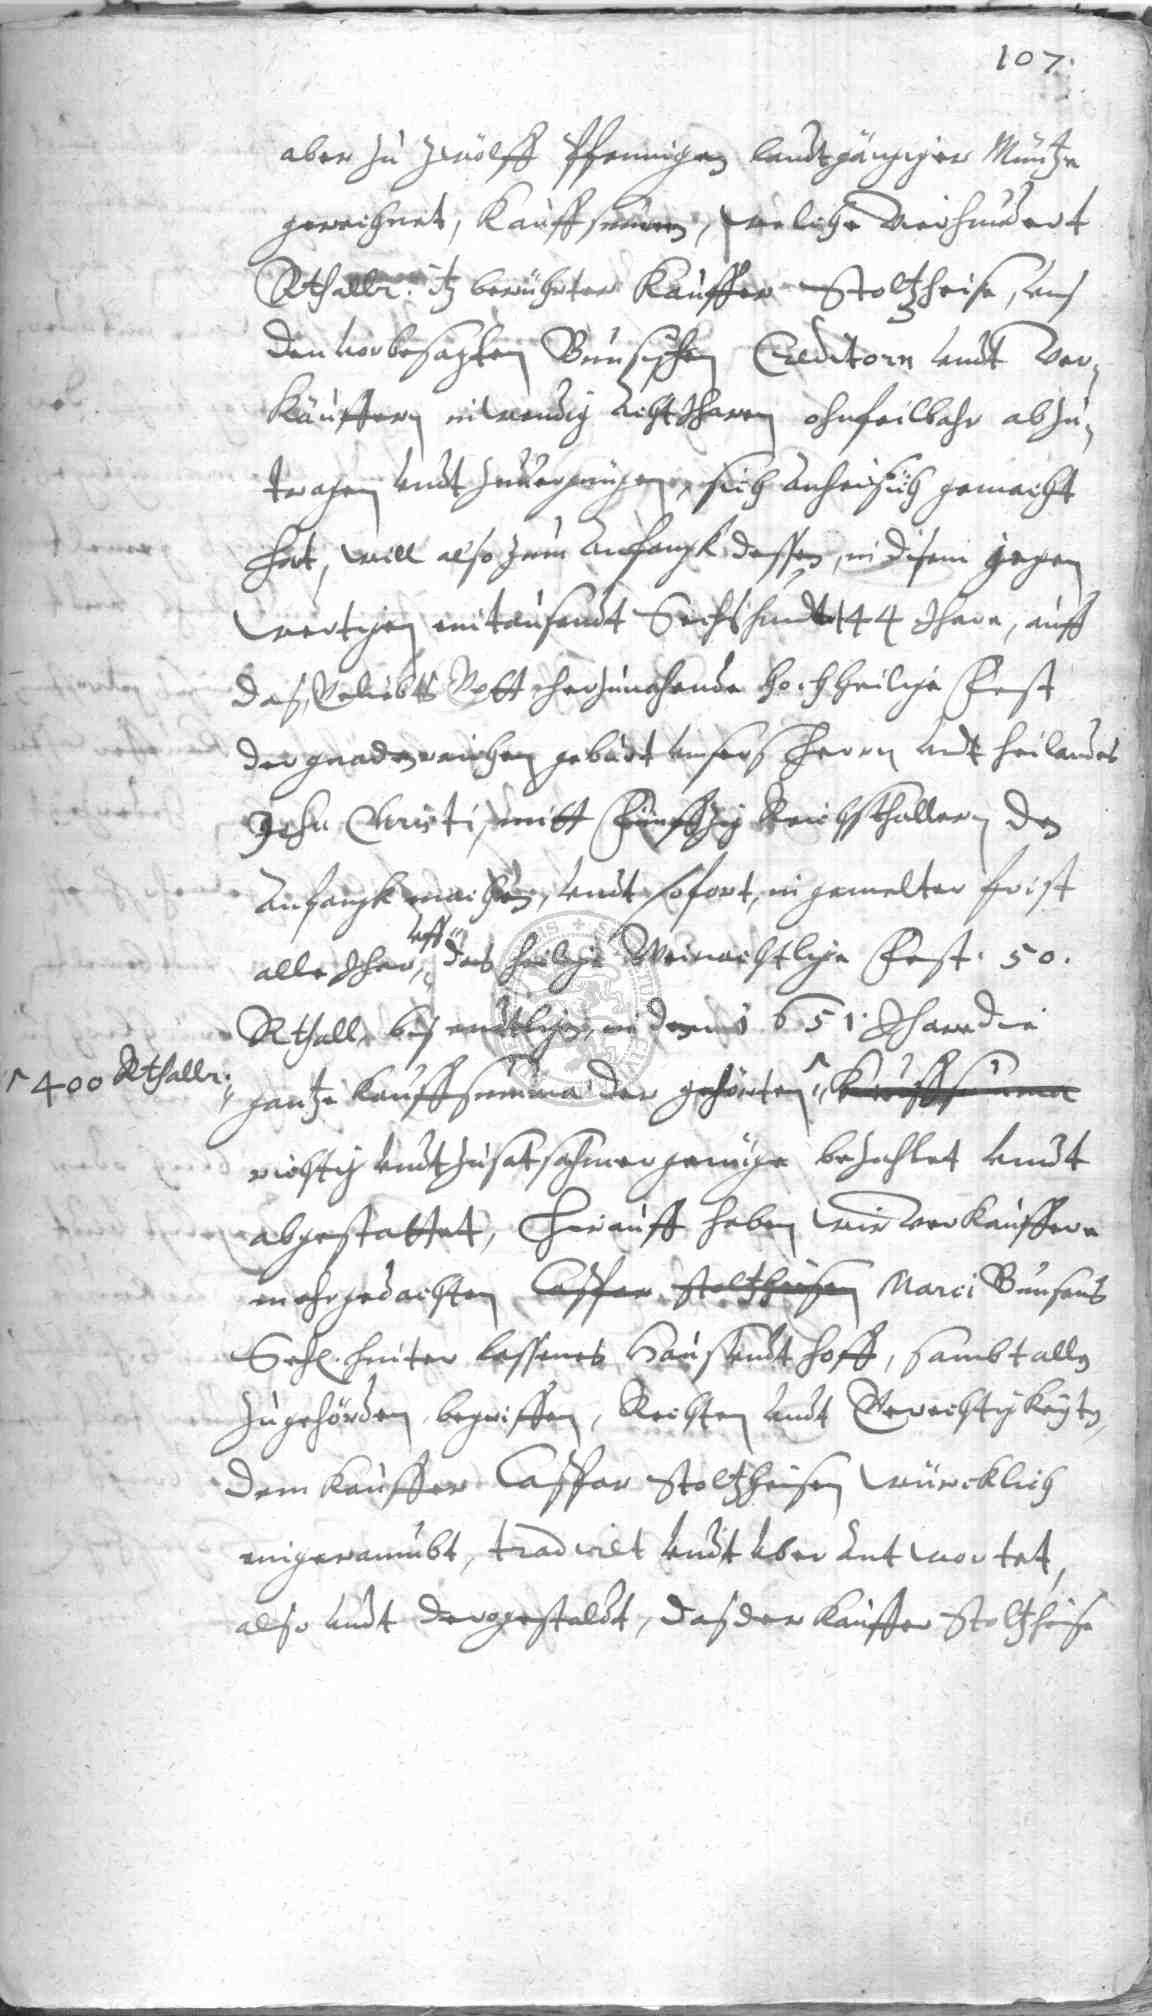 107.
aber zu zwölff Pfennigen landtgängiger Müntze
gerechnet, Kauffsummen, welche vierhundert
Rthallr. itz berührter Kauffer Stoltzheise, uns
den vorbesagten Bunsischen Creditorn undt Ver-
käuffern inwendig acht Jharen ohnfeilbahr abzu-
tragen undt zuvergnügen, sich anheischich gemacht
hat, will also zum Anfangk dessen, in disem gegen
wertigen eintausendt Sechshundt 44 Jhare, auff
das, Geliebts Gott herzunahende hochheilige Fest
der gnadenreichen geburt unsers Herrn undt heilandes
Jesu Christi, mitt Fünffzig Reichsthallern den
Anfangk machen, undt sofort, in gemelter frist
alle Jhar, uff das heilige Weinachtlige Fest. 50.
Rthall. bis endtligen, in dem 1651. Jhare die
^ 400 Rthallr.
gantze Kauffsumma der gehörten ^ Kauffsumma
richtig undt zusatsahmer genüge bezahlet undt
abgestattet, Hierauff haben wir verkauffere
mehrgedachten Casspar Stoltzheisen Marci Bunsens
Sehl. hinter lassenes Haus undt hoff, sambt allen
zugehörden, begriffen, Rechten undt Gerechtigkeyten,
dem Kauffer Casspar Stoltzheisen würcklich
eingeraumbt, tradiret undt uberantwortet,
also undt dergestaldt, das der Kauffer Stoltzheise